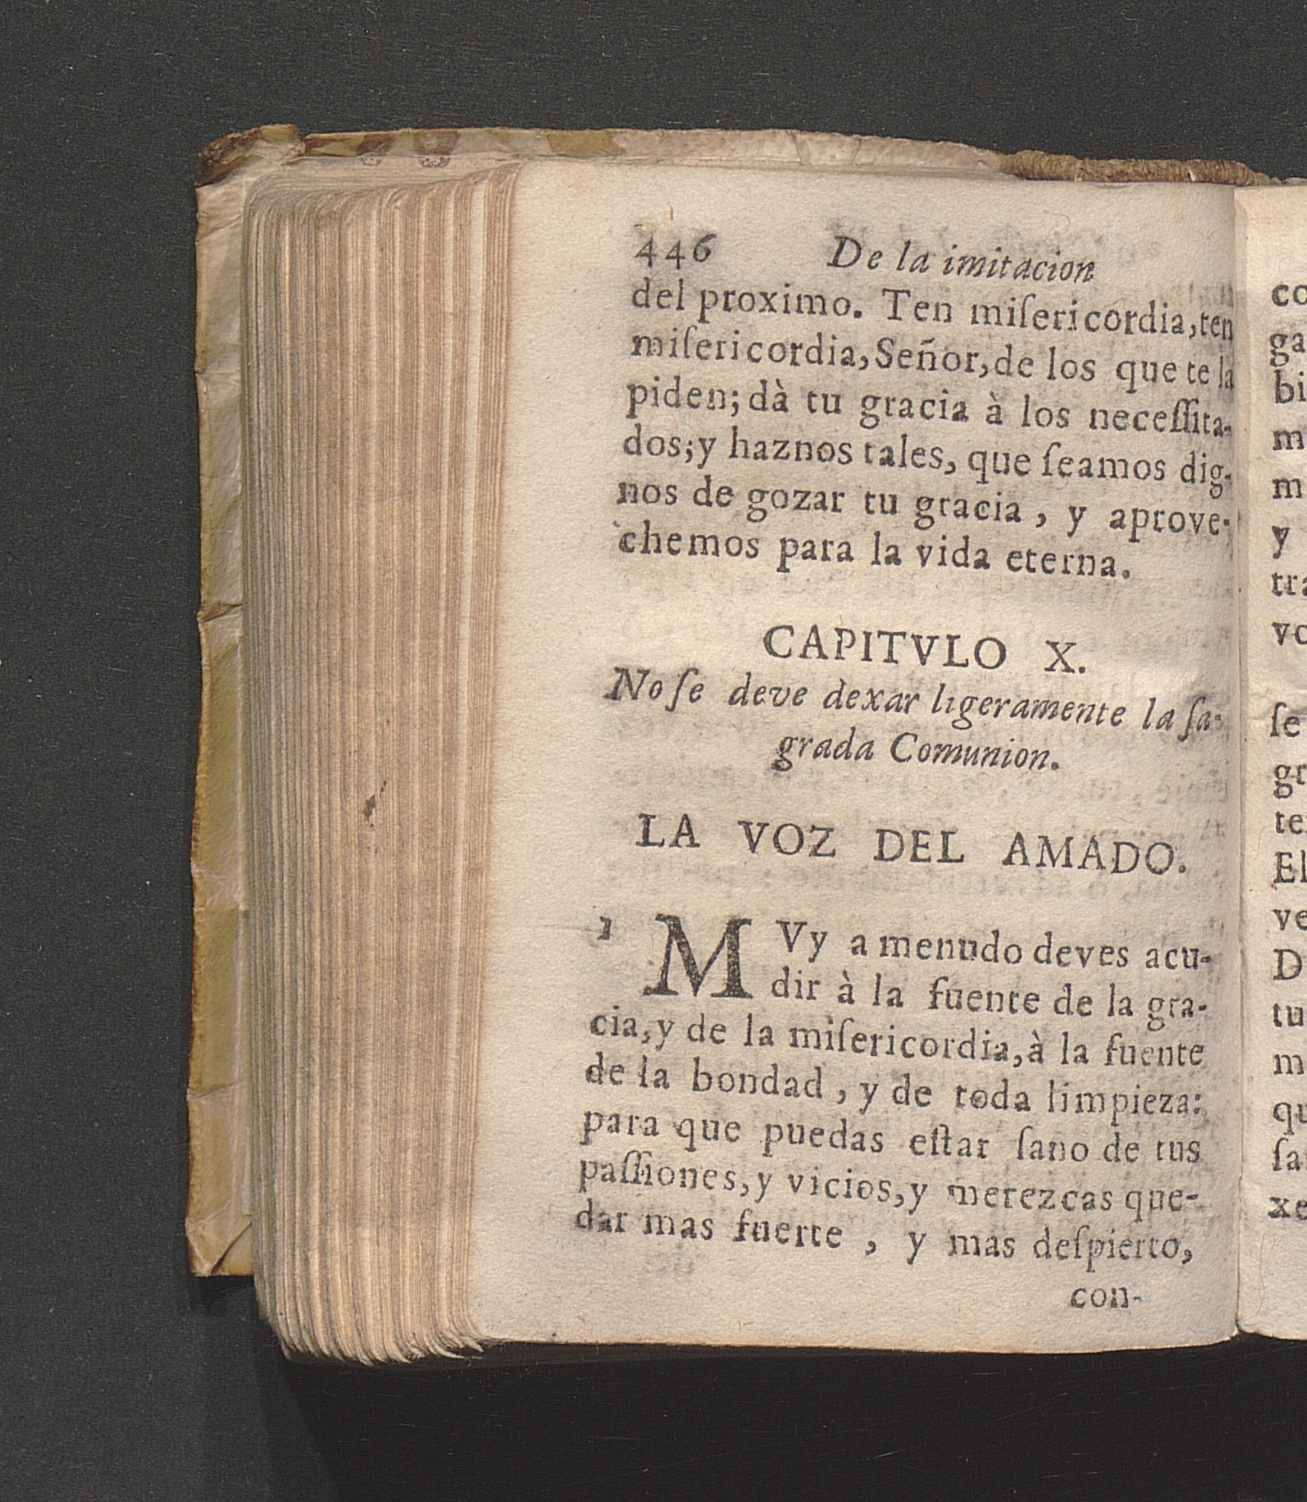 446 De la imitacion
del proximo. Ten miſericordia, ten
miſericordia, Señor, de los que te la
piden; dà tu gracia à los neceſſita-
dos; y haznos tales, que ſeamos dig-
nos de gozar tu gracia, y aprove-
chemos para la vida eterna.
CAPITVLO X.
No ſe deve dexar ligeramente la ſa-
grada Comunion.
LA VOZ DEL AMADO.
1 MVy a menudo deves acu-
dir à la fuente de la gra-
cia, y de la miſericordia, à la fuente
de la bondad, y de toda limpieza:
para que puedas eſtar ſano de tus
paſſiones, y vicios, y merezcas que-
dar mas fuerte, y mas deſpierto,
con-
co
ga
bi
m
m
y
tra
vo
ſe
gr
te
El
ve
D
tu
m
qu
ſa
xe